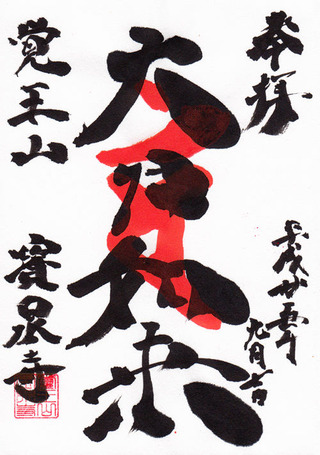 奉拝
平成廿五年
九月
大日如来
覚王山
寳泉寺